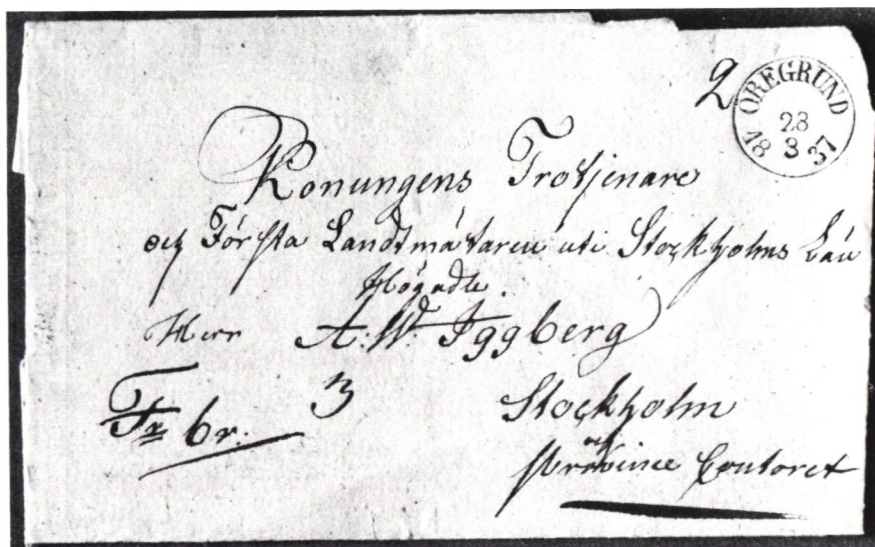 2
ÖREGRUND
28
3
18 37
Konungens Trotjenare
och Första Landtmätaren uti Stockholms Län
Högädle.
Herr A: Wd. Iggberg
Fr br: 3
Stockholm
och
Province Contoret